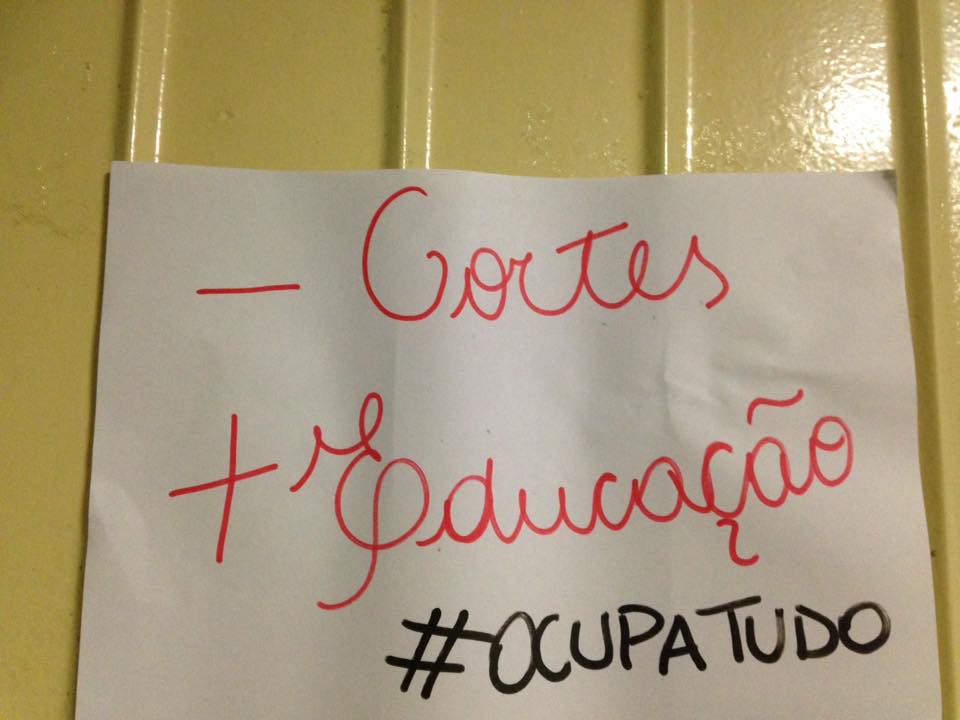 - Cortes
+ Educação
#OCUPATUDO